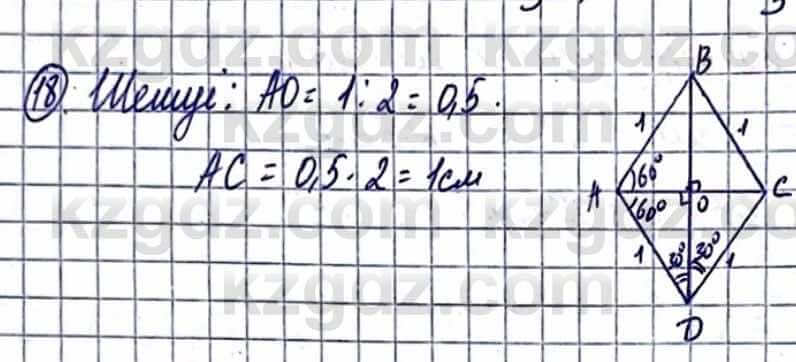 kzgdz.com kzgdz.com
18. Шешуі: AO = 1 : 2 = 0,5.
kzgdz.com
AC = 0,5 · 2 = 1см
kzgdz.com kzgdz.com
kzgdz.com
B
1 1
A 60° C
60° O
1 30° 30° 1
D